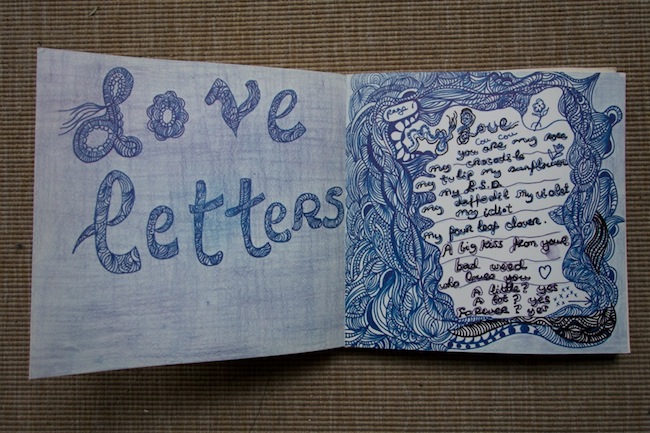 Love
letters
page
my Love
cou cou
you are my rose
my crocodile
my tulip my sunflower
my L.S.D
my daffodil my violet
my idiot
my four leaf clover.
A big kiss from your
bad weed
who loves you
A little? yes
A lot? yes
Forever? yes